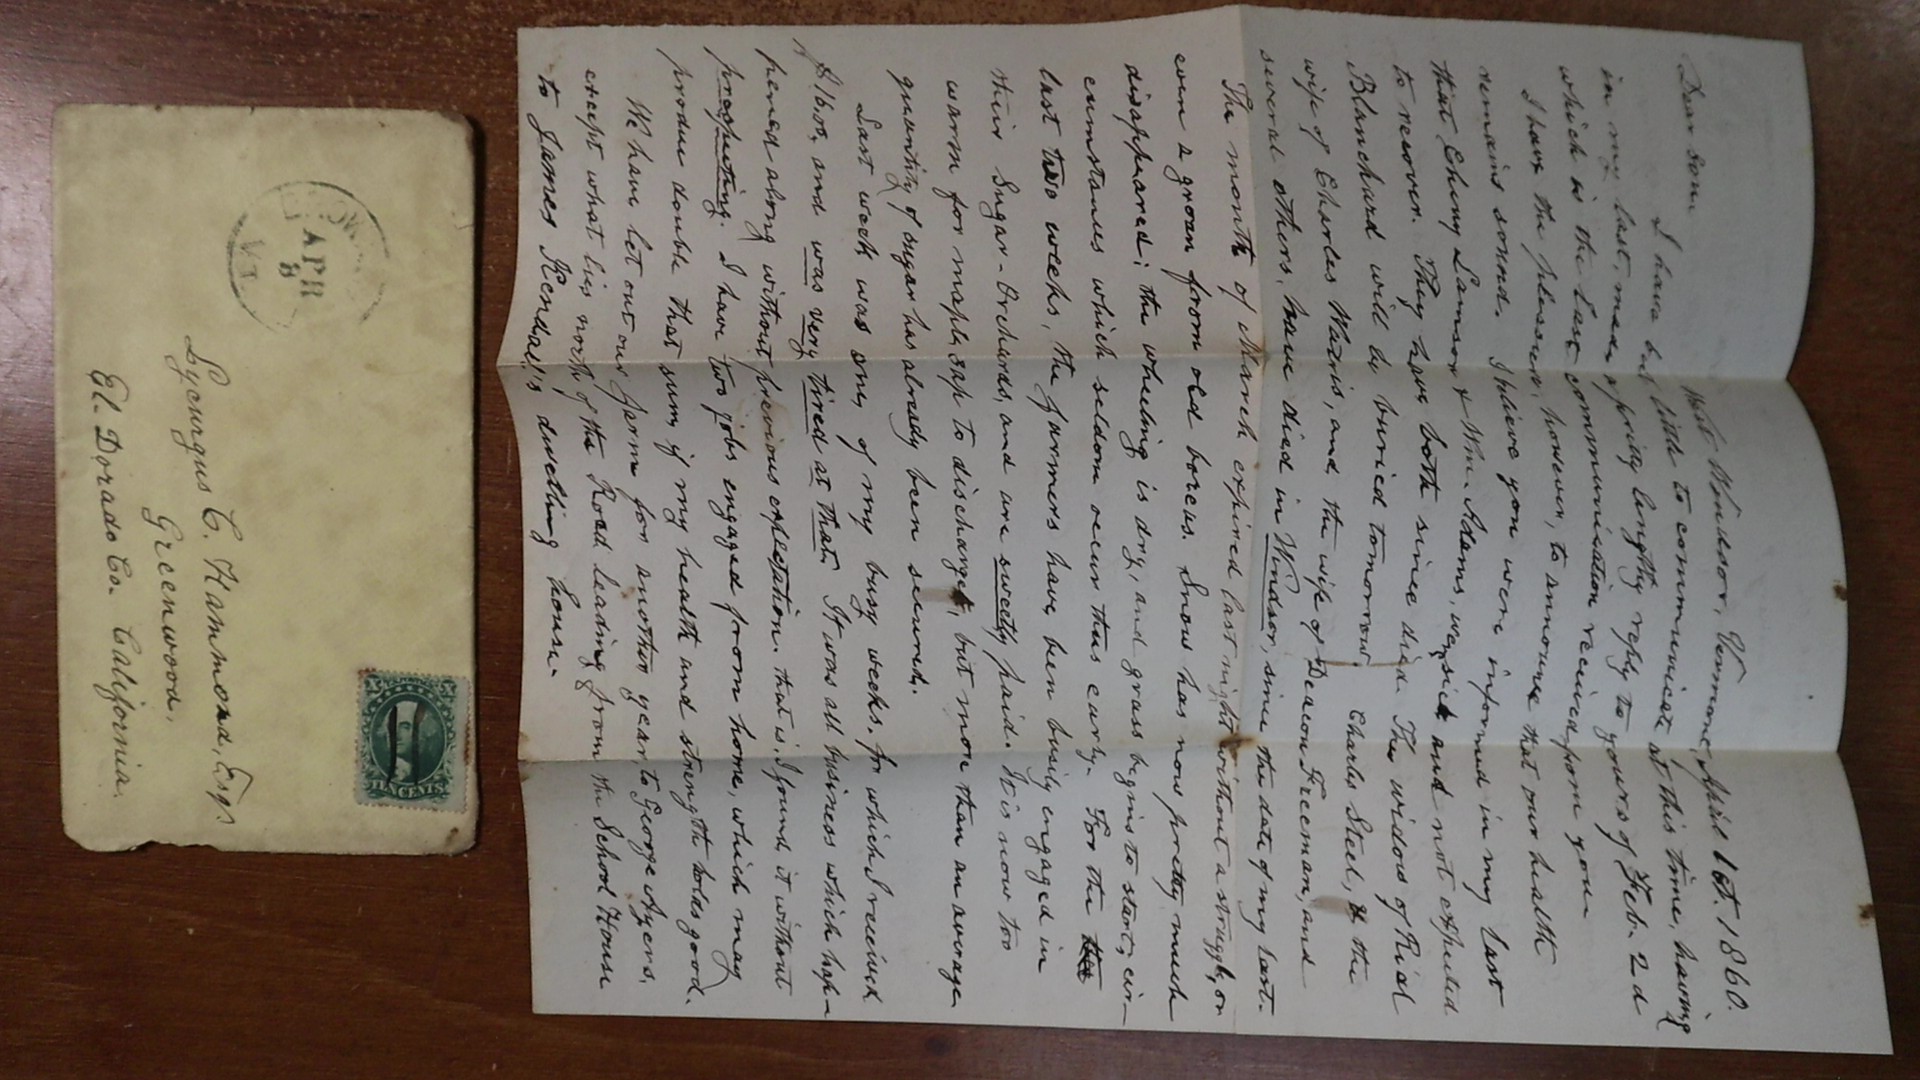 West Windsor, Vermont, April 1st. 1860.
Dear Son
I have but little to communicate at this time, having
in my last, made a pretty lengthy reply to yours of Feb. 2d
which is the last communication received from you
I have the pleasure, however, to announce that our health
remains sound. I believe you were informed in my last
that Ehimy Lamson & Wm. Adams, were sick and not expected
to recover. They have both since died. The widow of Rial
Blanchard will be buried tomorrow. Charles Steel, & the
wife of Charles Wadris, and the wife of Deacon Freeman, and
several others, have died in Windsor, since the date of my last.
The month of March expired last night without a struggle, or
even a groan from old boreus. Snow has now pretty much
disappeared; the wheeling is dry, and grass begins to start, cir-
cumstances which seldom occur thus early. For the the
last two weeks, the farmers have been busily engaged in
their Sugar-Orchards, and are sweetly paid. It is now too
warm for maple sap to discharge, but more than an average
quantity of sugar has already been secured.
Last week was one, of my busy weeks, for which I received
$16.00, and was very tired at that. It was all business which hap-
pened along without previous expectation. that is, I found it without
prospecting. I have two jobs engaged from home, which may
produce double that sum, if my health and strength holds good.
We have let out our farm for another year, to George Ayers,
except what lies north of the Road leading from the School House
to James Kendall's dwelling house.
APR
8
VT
Lycurgus C. Hammond, Esqr
Greenwood,
El. Dorado Co. California.
X X
TEN CENTS